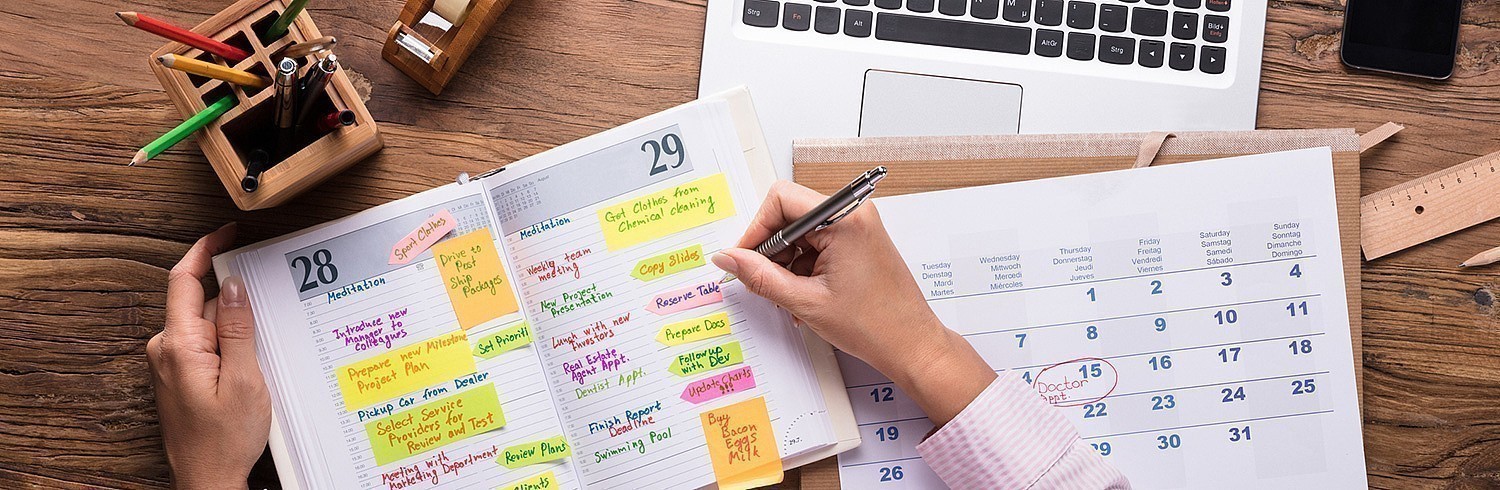 28
Sport Clothes
Meditation
Drive to
Post
Ship
Packages
Introduce new
Manager to
colleagues
Prepare new Milestone
Project Plan
Set Prioriti
Pickup Car from Dealer
Select Service
Providers for
Review and Test
Meeting with
Marketing Department
Review Plans
clients
29
August
Meditation
Get Clothes from
Chemical cleaning
Weekly team
meeting
Copy Slides
New Project
Presentation
Reserve Table
Lunch with new
Investors
Prepare Docs
Real Estate
Agent Appt.
Follow up
with Dev
Dentist Appt.
Update Charts
!!!
Finish Report
Deadline
Buy
Bacon
Eggs
Milk
Swimming Pool
29.7.
Strg
Fn
Alt
AltGr
Strg
Bild
Einfg
M
µ
Tuesday
Dienstag
Mardi
Martes
Wednesday
Mittwoch
Mercredi
Miércoles
Thursday
Donnerstag
Jeudi
Jueves
Friday
Freitag
Vendredi
Viernes
Saturday
Samstag
Samedi
Sábado
Sunday
Sonntag
Dimanche
1 2 3 4
7 8 9 10 11
12 4 15 16 17 18
Doctor
appt.
19 22 23 24 25
26 29 30 31